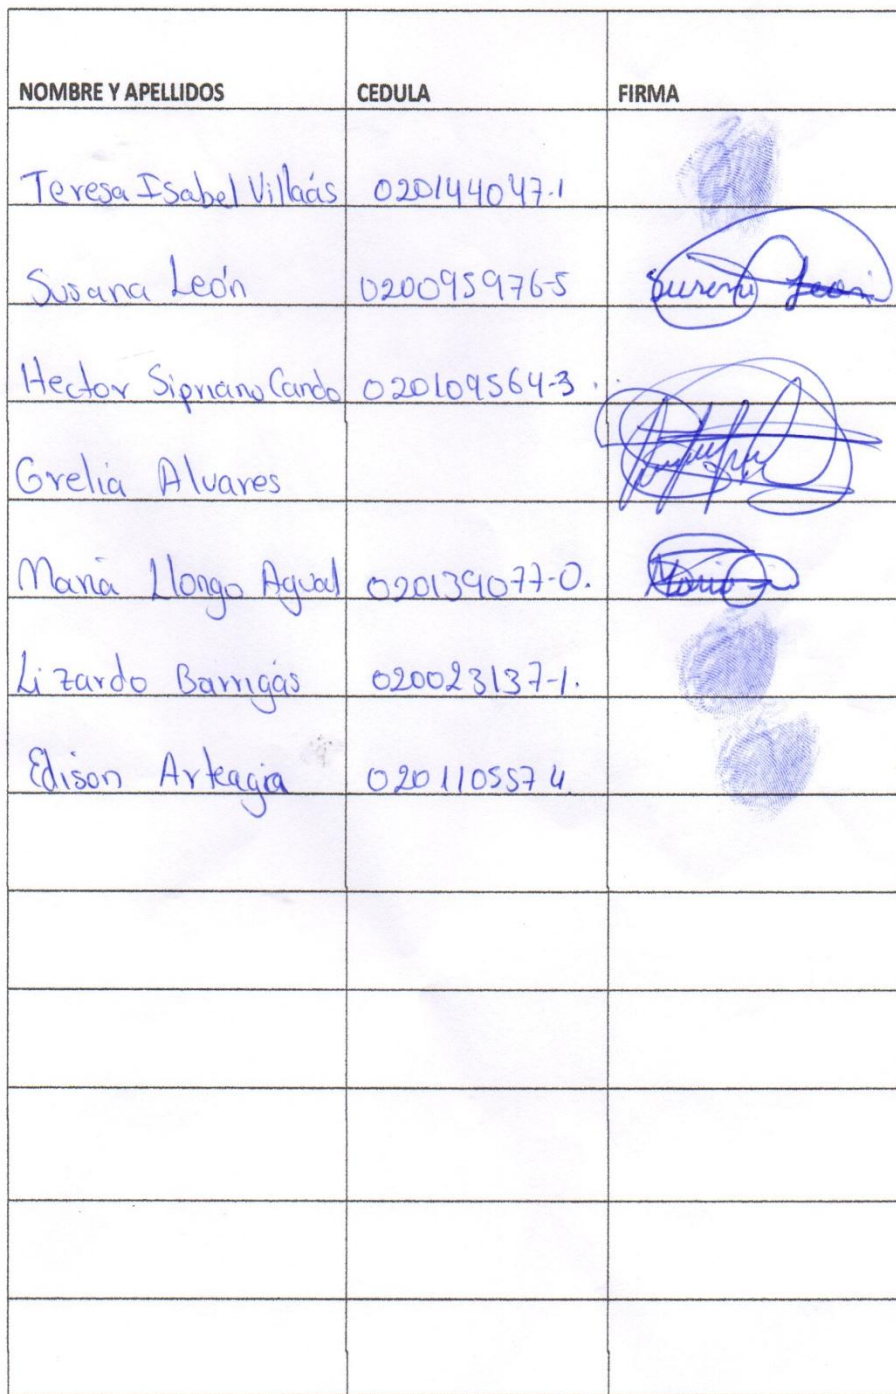 NOMBRE Y APELLIDOS CEDULA FIRMA
Teresa Isabel Villacís 020144047-1
Susana León 020095976-5 Susana Leon
Hector Sipriano Cando 020109564-3.
Grelia Alvares
Maria Llongo Agual 020139077-0. Maria
Lizardo Barrigas 020023137-1.
Edison Arteagia 0201105574.